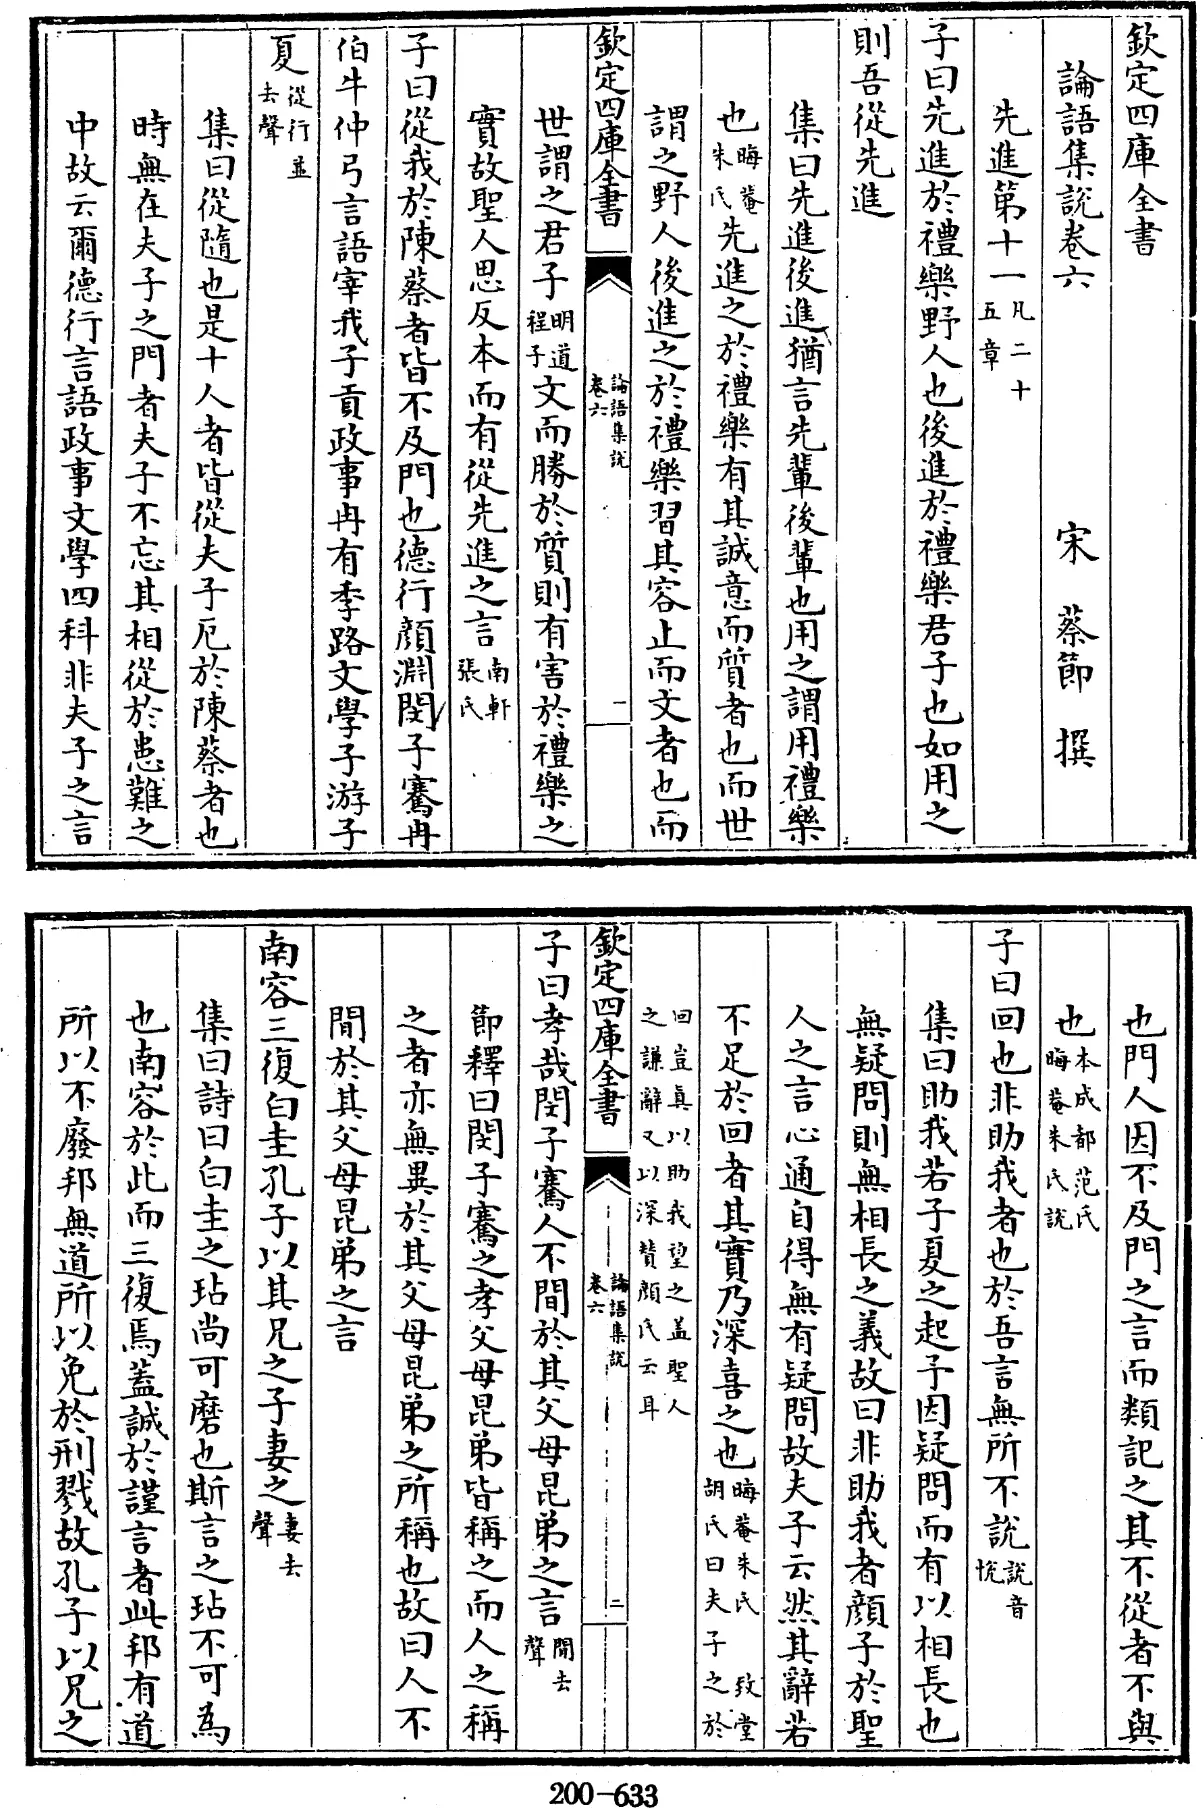 欽定四庫全書
論語集說卷六
宋 蔡節 撰
先進第十一凡二十五章
子曰先進於禮樂野人也後進於禮樂君子也如用之
則吾從先進
集曰先進後進猶言先輩後輩也用之謂用禮樂
也晦菴朱氏先進之於禮樂有其誠意而質者也而世
謂之野人後進之於禮樂習其容止而文者也而
欽定四庫全書
論語集說
卷六
一
世謂之君子明道程子文而勝於質則有害於禮樂之
實故聖人思反本而有從先進之言南軒張氏
子曰從我於陳蔡者皆不及門也德行顏淵閔子騫冉
伯牛仲弓言語宰我子貢政事冉有季路文學子游子
夏從行並去聲
集曰從隨也是十人者皆從夫子厄於陳蔡者也
時無在夫子之門者夫子不忘其相從於患難之
中故云爾德行言語政事文學四科非夫子之言
也門人因不及門之言而類記之其不從者不與
也本成都范氏晦菴朱氏說
子曰回也非助我者也於吾言無所不說說音悅
集曰助我若子夏之起予因疑問而有以相長也
無疑問則無相長之義故曰非助我者顏子於聖
人之言心通自得無有疑問故夫子云然其辭若
不足於回者其實乃深喜之也晦菴朱氏 致堂胡氏曰夫子之於
回豈真以助我望之盖聖人之謙辭又以深贊顏氏云耳
欽定四庫全書
論語集說
卷六
二
子曰孝哉閔子騫人不間於其父母昆弟之言間去聲
節釋曰閔子騫之孝父母昆弟皆稱之而人之稱
之者亦無異於其父母昆弟之所稱也故曰人不
間於其父母昆弟之言
南容三復白圭孔子以其兄之子妻之妻去聲
集曰詩曰白圭之玷尚可磨也斯言之玷不可為
也南容於此而三復焉蓋誠於謹言者此邦有道
所以不廢邦無道所以免於刑戮故孔子以兄之
200-633